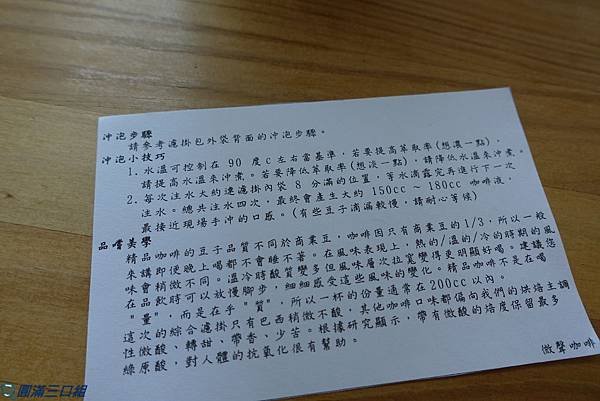 沖泡步驟
請參考濾掛包外袋背面的沖泡步驟。
沖泡小技巧
1. 水溫可控制在 90 度c左右當基準，若要提高萃取率(想濃一點)，
請提高水溫來沖煮。若要降低萃取率(想淡一點)，請降低水溫來沖煮。
2. 每次注水大約達濾掛內袋 8 分滿的位置，等水滴露完再進行下一次
注水。總共注水四次，最終會產生大約 150cc ~ 180cc 咖啡液，
最接近現場手沖的口感。(有些豆子滴漏較慢，請耐心等候)
品嚐美學
精品咖啡的豆子品質不同於商業豆，咖啡因只有商業豆的1/3，所以一般
來講即便晚上喝都不會睡不著。在風味表現上，熱的/溫的/冷的時期的風
味會稍微不同。溫冷時酸質變多但風味層次拉寬變得更明顯好喝。建議您
在品飲時可以放慢腳步，細細感受這些風味的變化。精品咖啡不是在喝
"量"，而是在乎 "質"，所以一杯的份量通常在200cc以內。
這次的綜合濾掛只有巴西稍微不酸，其他咖啡口味都偏向我們的烘焙主調
性微酸、轉甜、帶香、少苦。根據研究顯示，帶有微酸的焙度保留最多
綠原酸，對人體的抗氧化很有幫助。
微聲咖啡
圓滿三口組